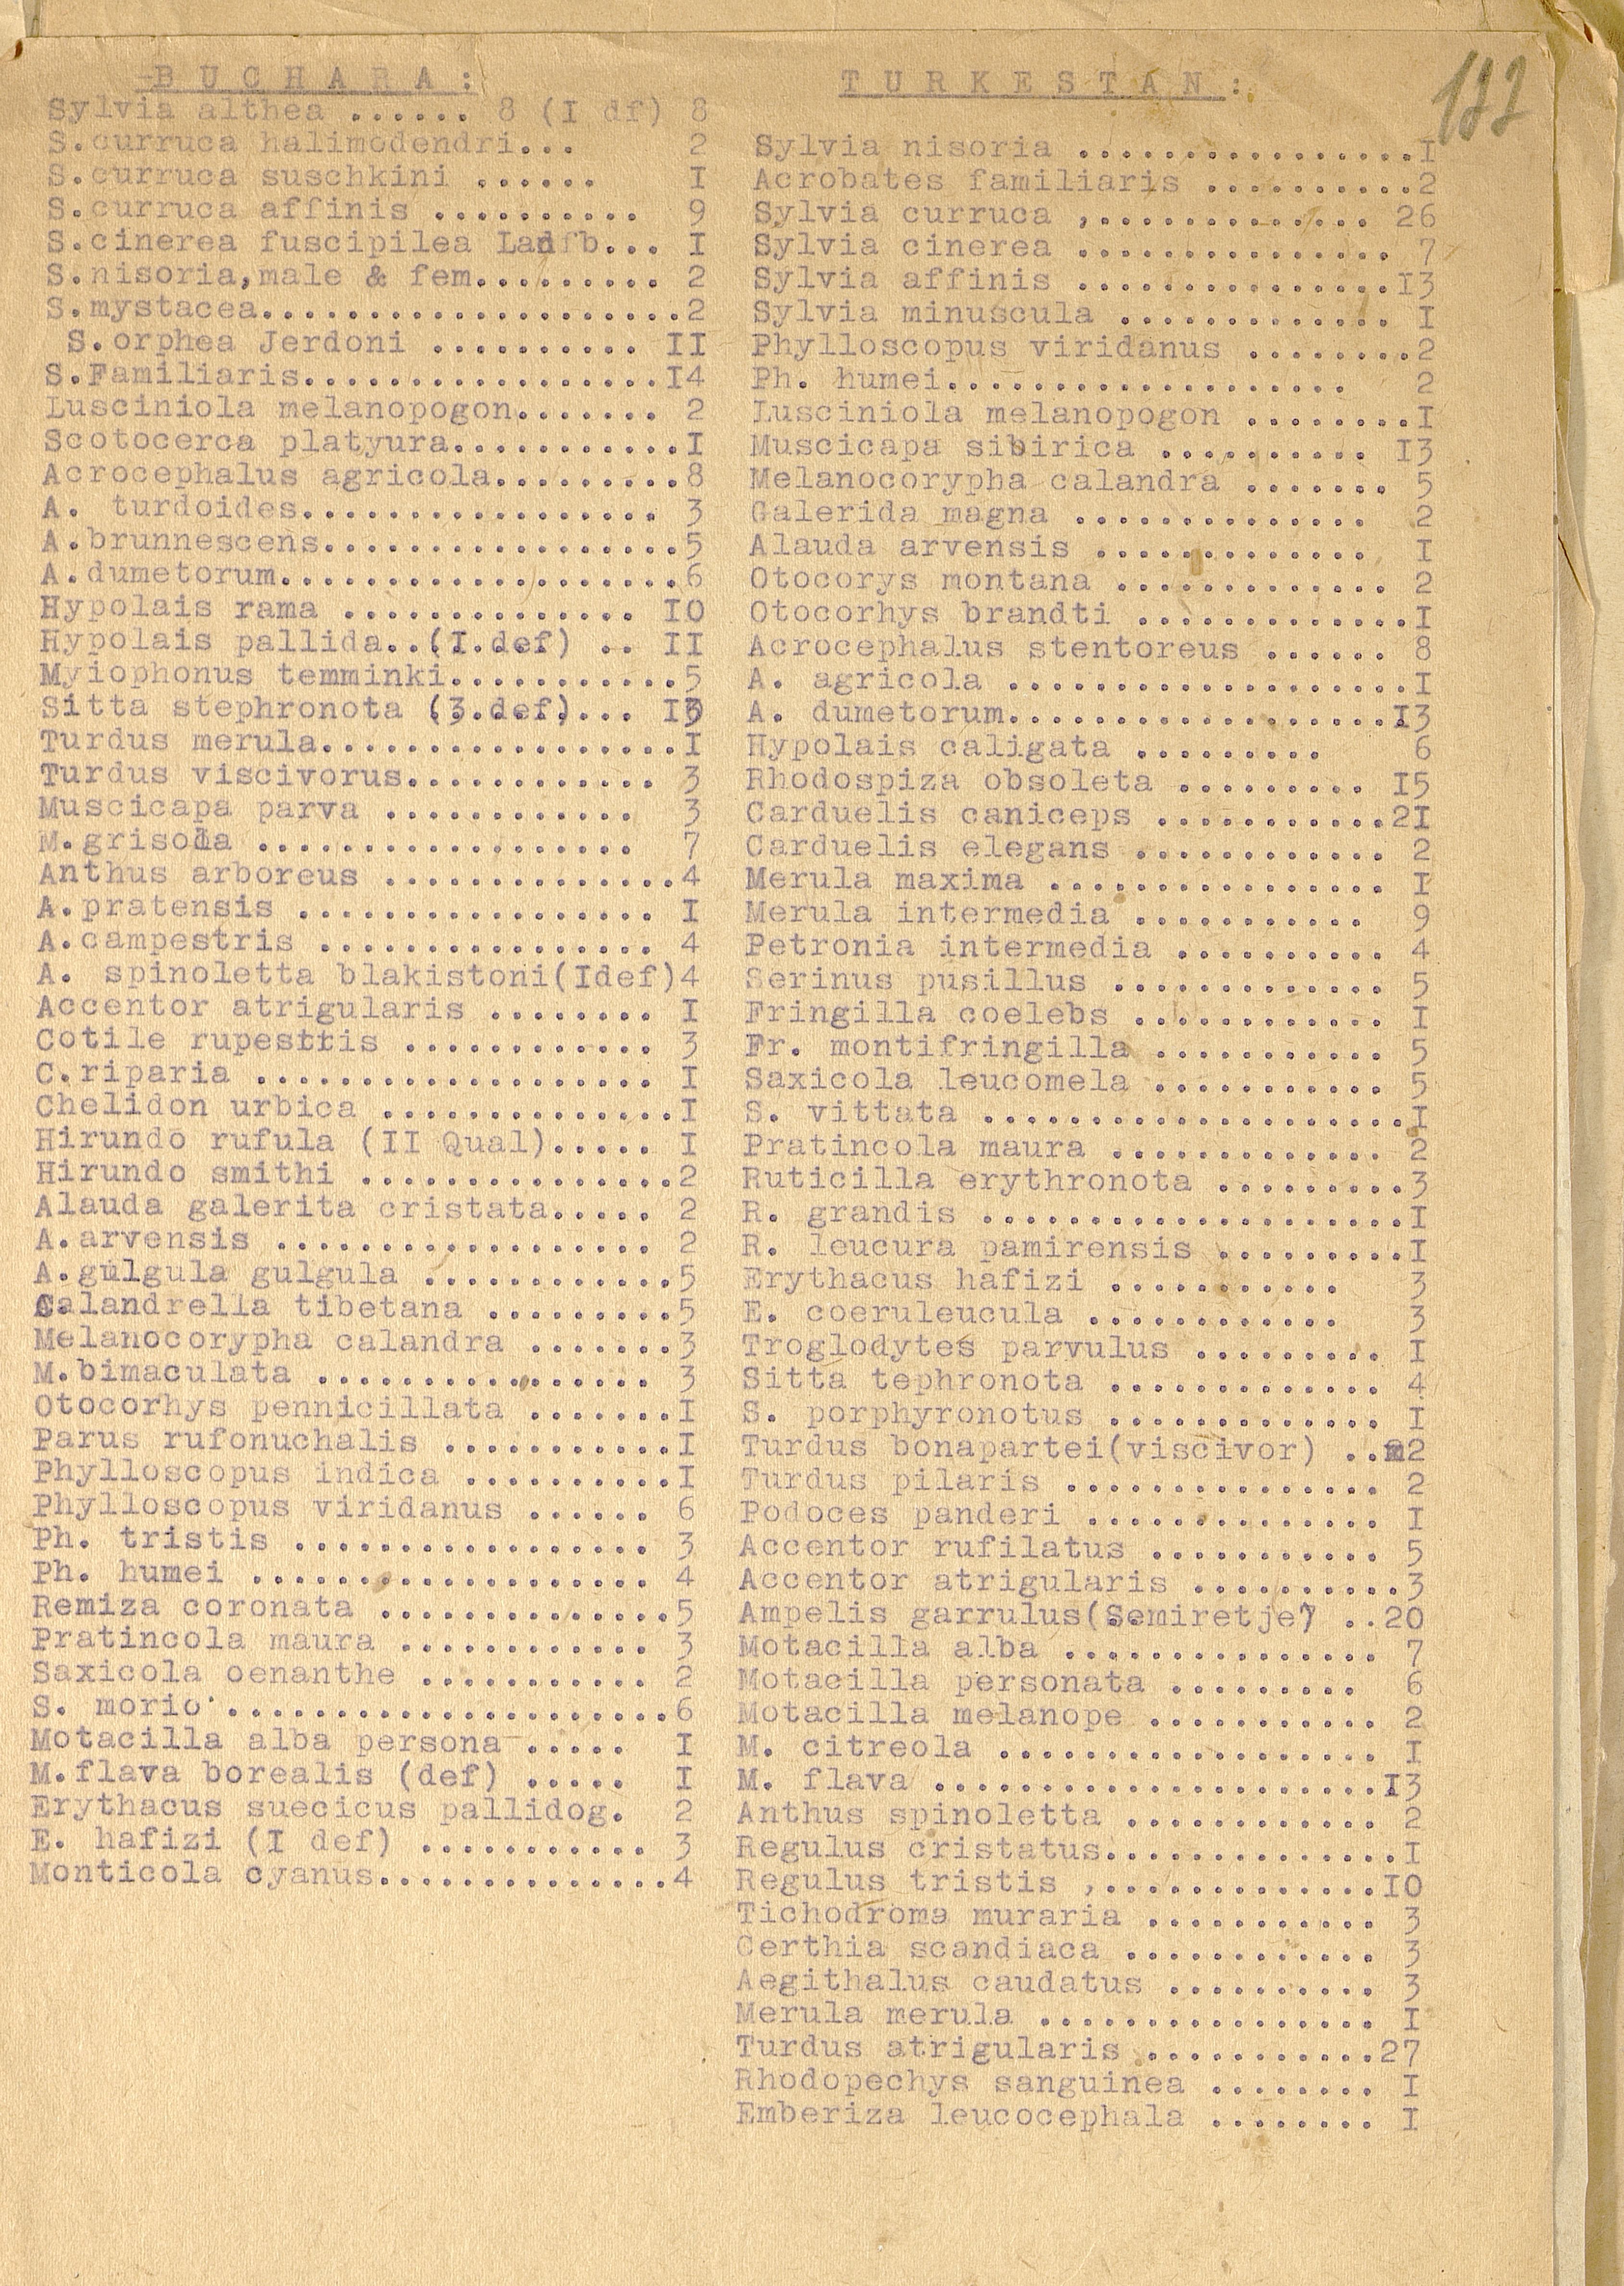 B U C H A R A :
Sylvia althea ...... 8 (I df) 8
S.curruca halimodendri... 2
S.curruca suschkini ...... I
S.curruca affinis .......... 9
S.cinerea fuscipilea Ladfb... I
S.nisoria,male & fem......... 2
S.mystacea....................2
S.orphea Jerdoni .......... II
S.Familiaris.................I4
Lusciniola melanopogon....... 2
Scotocerca platyura...........I
Acrocephalus agricola.........8
A. turdoides................. 3
A.brunnescens.................5
A.dumetorum...................6
Hypolais rama .............. IO
Hypolais pallida..(I.def) .. II
Myiophonus temminki...........5
Sitta stephronota (3.def)...
Turdus merula.................I
Turdus viscivorus............ 3
Muscicapa parva ............ 3
M.grisola .................. 7
Anthus arboreus ..............4
A.pratensis ................. I
A.campestris ................ 4
A. spinoletta blakistoni(Idef)4
Accentor atrigularis ........ I
Cotile rupestris ............ 3
C.riparia ................... I
Chelidon urbica ..............I
Hirundo rufula (II Qual)..... I
Hirundo smithi ...............2
Alauda galerita cristata..... 2
A.arvensis .................. 2
A.gulgula gulgula ............5
Calandrella tibetana .........5
Melanocorypha calandra .......3
M.bimaculata ................ 3
Otocorhys pennicillata .......I
Parus rufonuchalis ...........I
Phylloscopus indica ..........I
Phylloscopus viridanus ...... 6
Ph. tristis ................. 3
Ph. humei ................... 4
Remiza coronata ..............5
Pratincola maura ............ 3
Saxicola oenanthe ........... 2
S. morio .....................6
Motacilla alba persona ..... I
M.flava borealis (def) ..... I
Erythacus suecicus pallidog. 2
E. hafizi (I def) ........... 3
Monticola cyanus..............4
T U R K E S T A N :
122
Sylvia nisoria ................I
Acrobates familiaris ..........2
Sylvia curruca ,............. 26
Sylvia cinerea ............... 7
Sylvia affinis ...............I3
Sylvia minuscula ............. I
Phylloscopus viridanus ........2
Ph. humei................... 2
Lusciniola melanopogon ........I
Muscicapa sibirica .......... I3
Melanocorypha calandra ....... 5
Galerida magna .............. 2
Alauda arvensis ............. I
Otocorys montana ............. 2
Otocorhys brandti .............I
Acrocephalus stentoreus ...... 8
A. agricola ...................I
A. dumetorum..................I3
Hypolais caligata ......... 6
Rhodospiza obsoleta ......... I5
Carduelis caniceps ...........2I
Carduelis elegans ............ 2
Merula maxima ................ I
Merula intermedia ........... 9
Petronia intermedia .......... 4
Serinus pusillus ............. 5
Fringilla coelebs ............ I
Fr. montifringilla ........... 5
Saxicola leucomela ........... 5
S. vittata ....................I
Pratincola maura ............. 2
Ruticilla erythronota .........3
R. grandis ....................I
R. leucura pamirensis .........I
Erythacus hafizi ........... 3
E. coeruleucula ............ 3
Troglodytes parvulus ......... I
Sitta tephronota ............. 4
S. porphyronotus ............. I
Turdus bonapartei(viscivor) ..2
Turdus pilaris ............... 2
Podoces panderi .............. I
Accentor rufilatus ........... 5
Accentor atrigularis ..........3
Ampelis garrulus(Semiretje7 ..20
Motacilla alba ............... 7
Motacilla personata ......... 6
Motacilla melanope ........... 2
M. citreola .................. I
M. flava .....................I3
Anthus spinoletta ............ 2
Regulus cristatus..............I
Regulus tristis ,.............IO
Tichodroma muraria ........... 3
Certhia scandiaca ............ 3
Aegithalus caudatus .......... 3
Merula merula ................ I
Turdus atrigularis ...........27
Rhodopechys sanguinea ........ I
Emberiza leucocephala ........ I